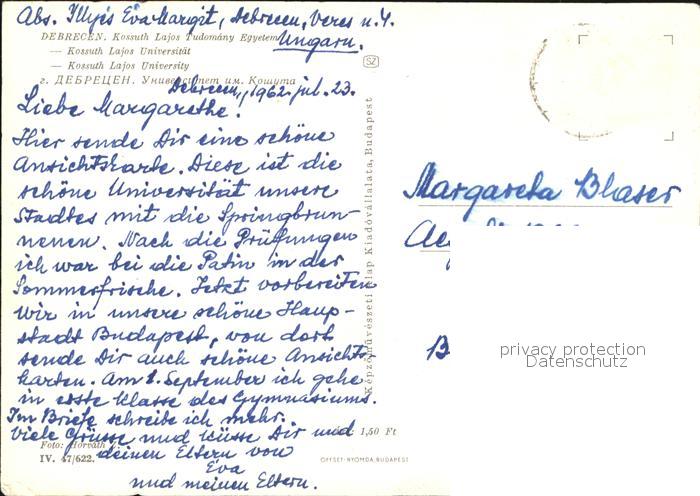 Abs. Illyés Éva Margit, Debrecen, Veres u. 4.
Ungarn.
DEBRECEN. Kossuth Lajos Tudomány Egyetem
— Kossuth Lajos Universität
— Kossuth Lajos University
г. ДЕБРЕЦЕН. Университет им. Кошута
SZ
Debrecen, 1962. jul. 23.
Liebe Margarethe!
Hier sende Dir eine schöne
Ansichtskarte. Diese ist die
schöne Universität unsere
Stadtes mit die Springbrun-
nenen. Nach die Prüfungen
ich war bei die Patin in der
Sommerfrische. Jetzt vorbereiten
wir in unsere schöne Haup-
stadt Budapest, von dort
sende Dir auch schöne Ansichts-
karten. Am 1. September ich gehe
in erste Klasse des Gymnasiums.
Im Briefe schreibe ich mehr.
Viele Grüsse und Küsse Dir und
deinen Eltern von
Éva
und meinen Eltern.
1,50 Ft
Foto: Horváth
IV. 47/622.
OFFSET-NYOMDA, BUDAPEST
Képzőművészeti Alap Kiadóvállalata, Budapest
Margareta Blaser
B
privacy protection
Datenschutz